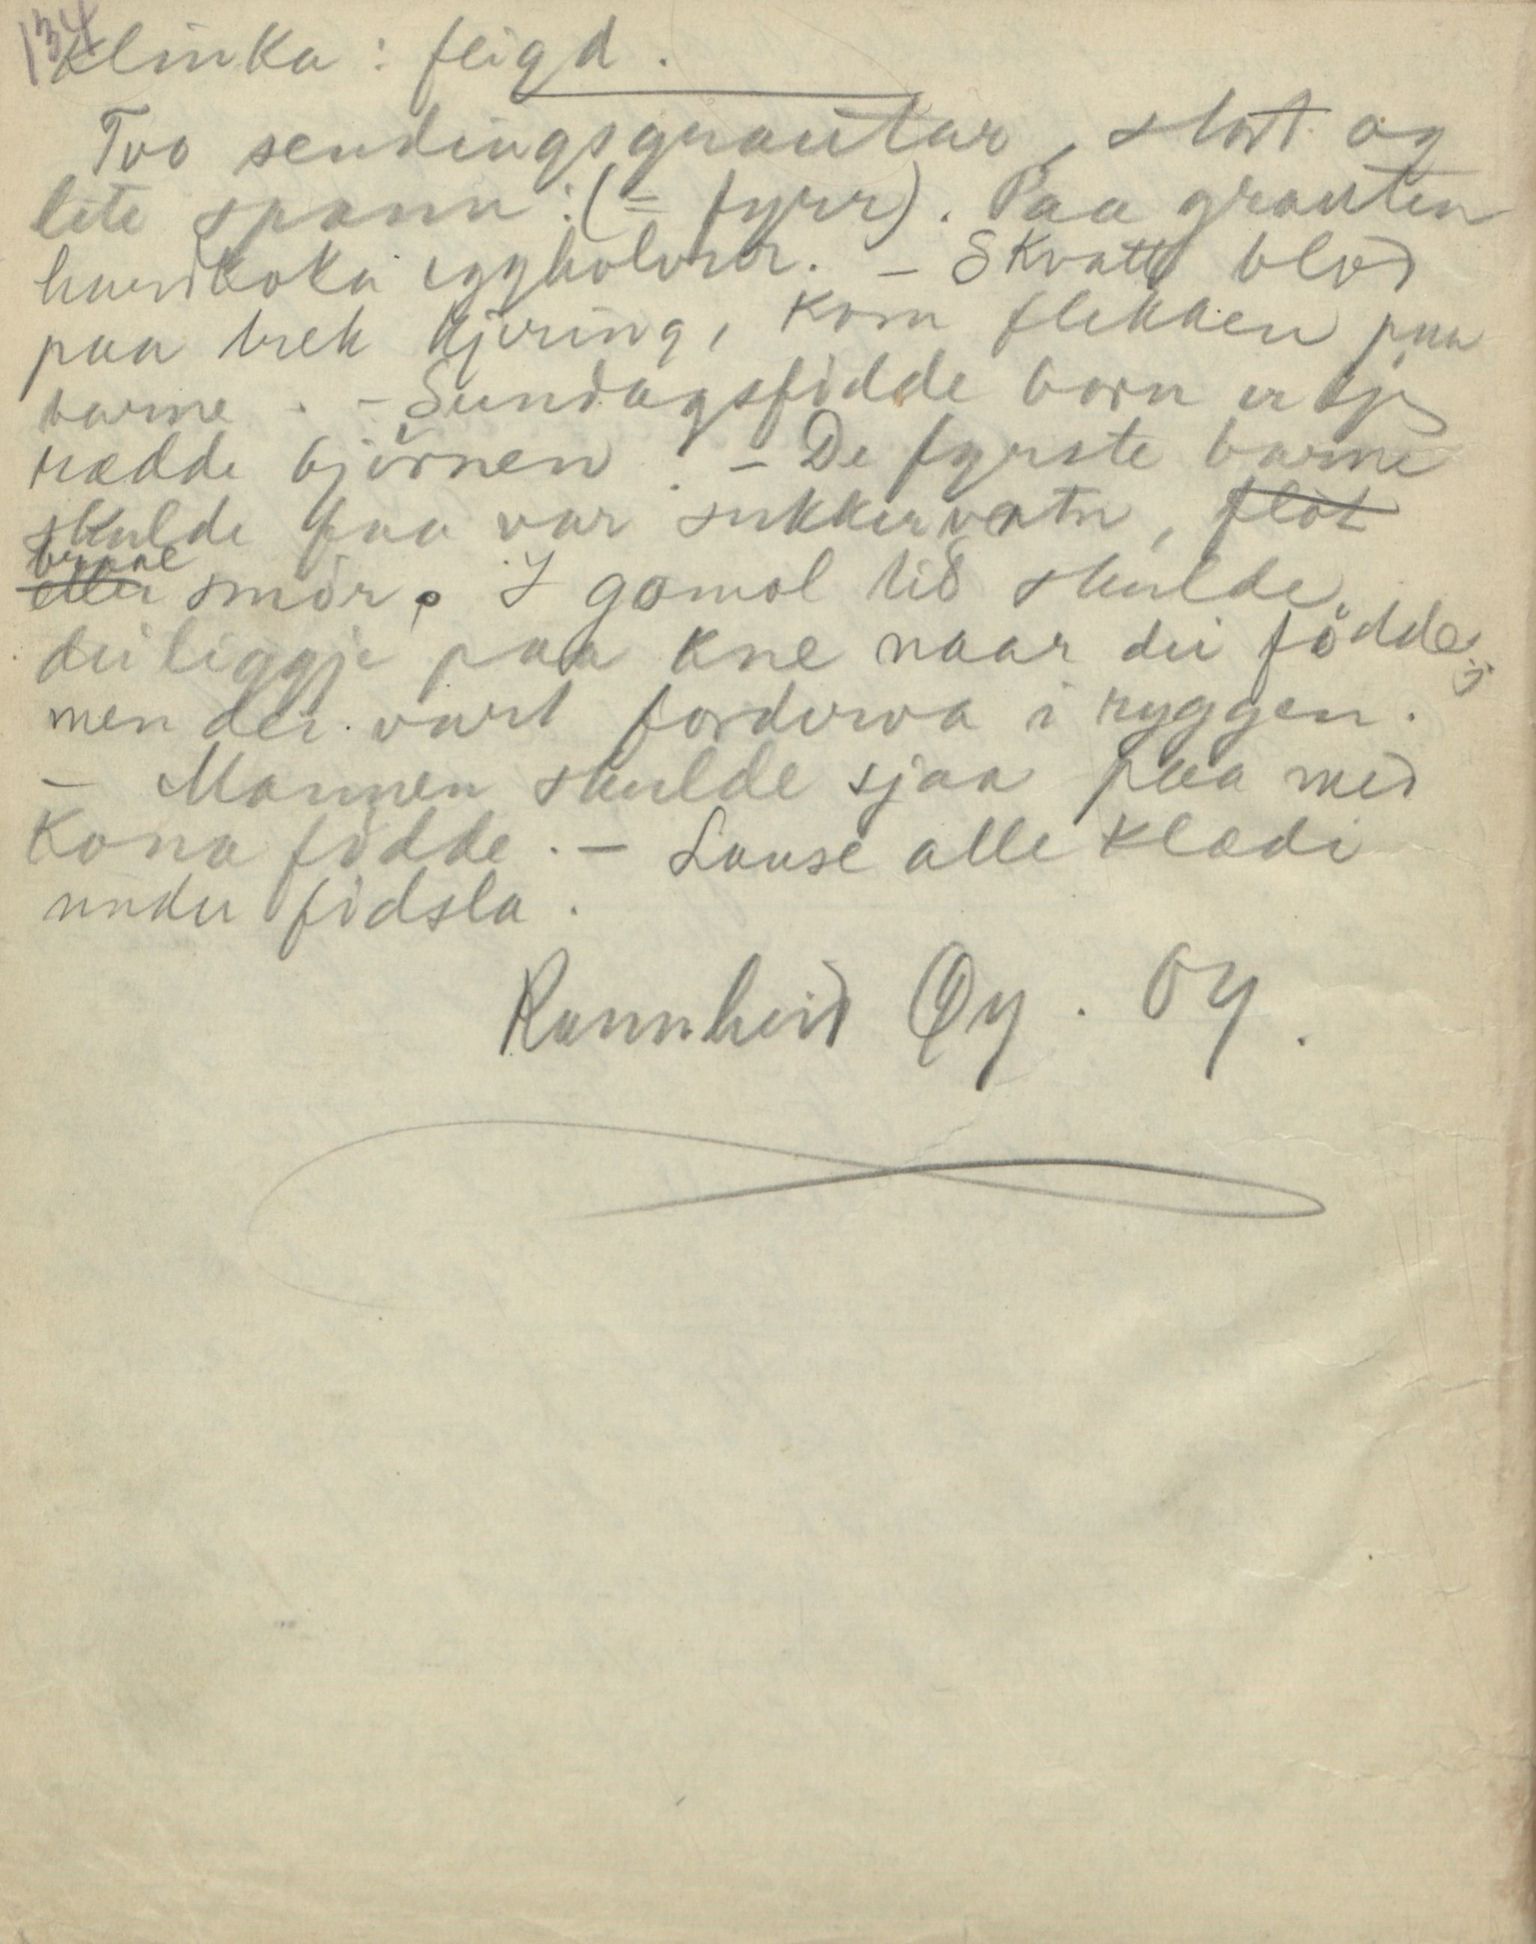 134
Klinka: feigd.
Tvo sendingsgrautar, stort og
lite spann: (= fyrr). Paa grauten
hardkoka eggholver. - Skvatt blod
paa trek kjering, kom flekken paa
barne. - Sundagsfødde born er ikje
rædde bjørnen. - De fyrste barne
skulde faa var sukkervatn, fløt
eller brune smör. I gamol tid skulde
dei liggje paa kne naar dei födde,
men dei vart forderva i ryggen.
- Mannen skulde sjaa paa med
Kona födde. - Lause alle klædi
under fidsla.
Rannheid Øy. Øy.